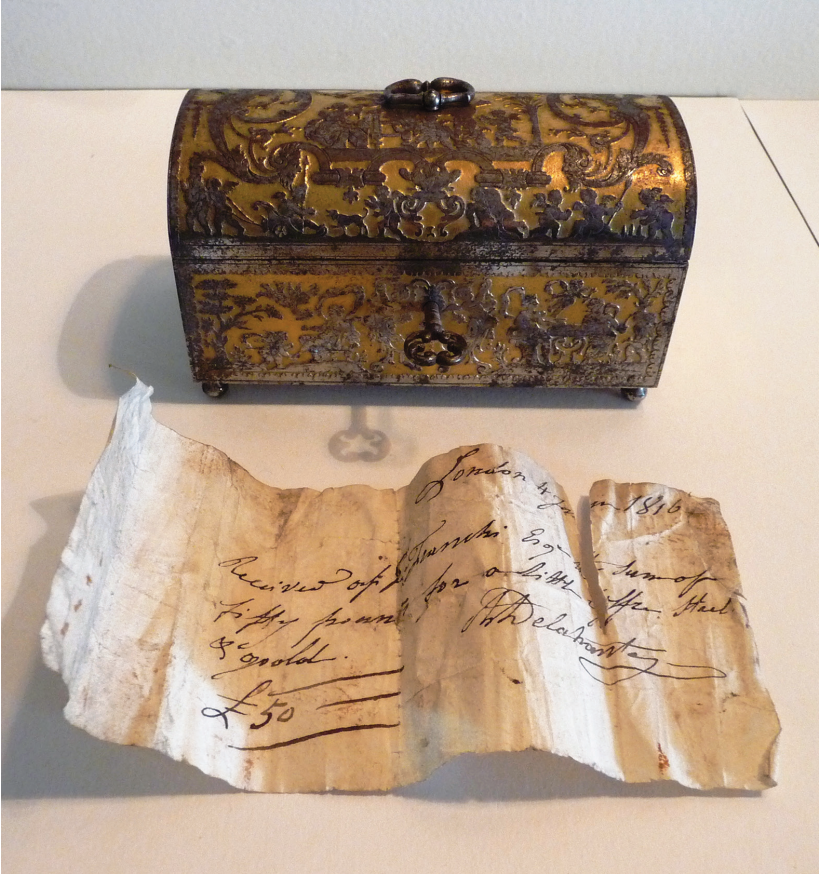 London 4 June 1816
Received of G. Franchi Esqr the sum of
fifty pounds for a little coffre Steel
& gold.
ADelahante
£50